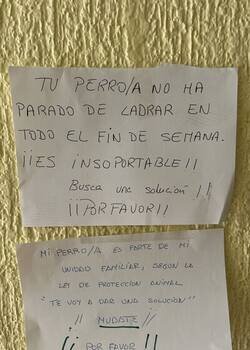 TU PERRO/A NO HA
PARADO DE LADRAR EN
TODO EL FÍN DE SEMANA.
¡¡ES INSOPORTABLE!!
Busca una solución !!
¡¡POR FAVOR!!
MI PERRO/A ES PARTE DE MI
UNIDAD FAMILIAR, SEGÚN LA
LEY DE PROTECCIÓN ANIMAL
"TE VOY A DAR UNA SOLUCIÓN"
¡¡ MUDATE !!
¡¡ POR FAVOR !!